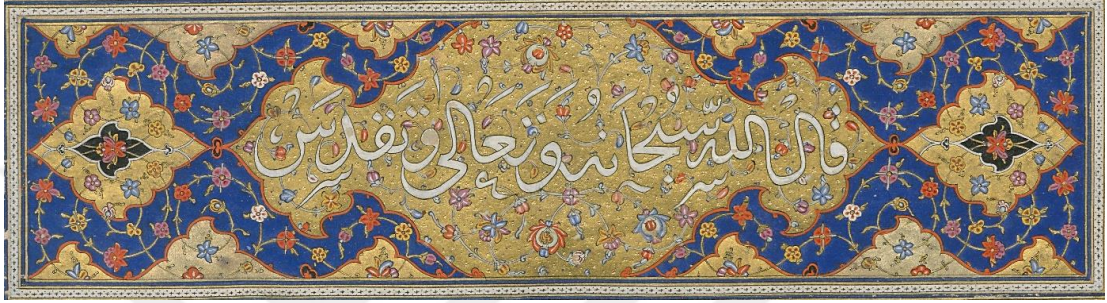 قال الله سبحانه وتعالى وتقدس